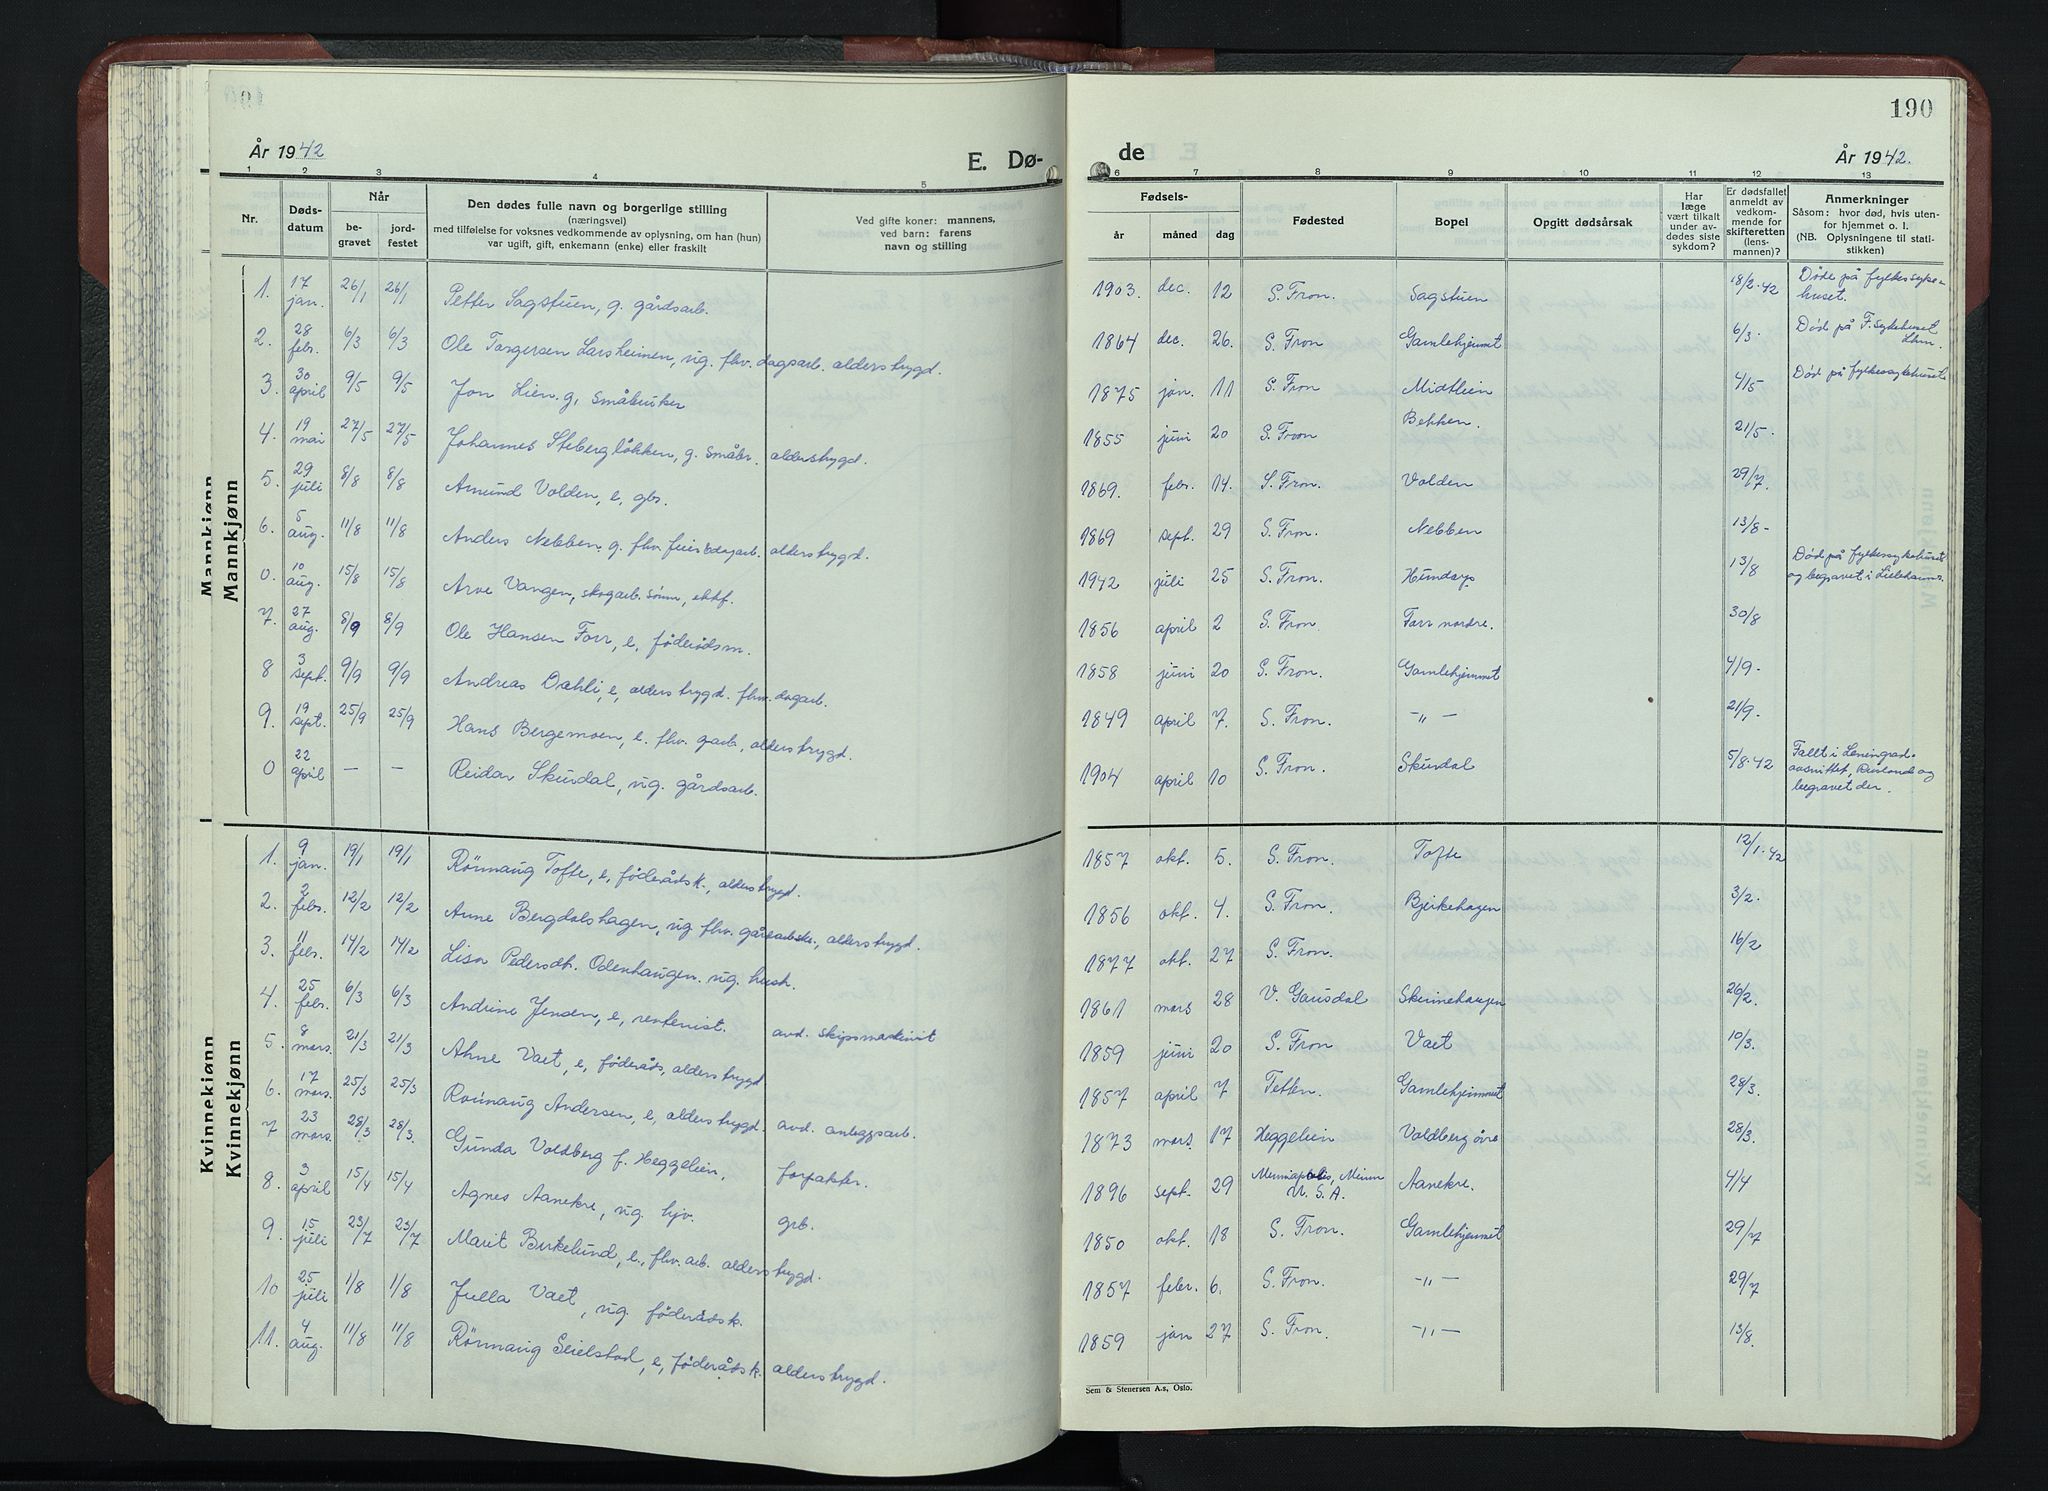 190
År 1942
E. Dø-
de
År 1942.
1 2 3 4 5 6 7 8 9 10 11 12 13
Nr.
Døds-
datum
Når
be-
gravet
jord-
festet
Den dødes fulle navn og borgerlige stilling
(næringsvei)
med tilføielse for voksnes vedkommende av oplysning, om han (hun)
var ugift, gift, enkemann (enke) eller fraskilt
Ved gifte koner: mannens,
ved barn: farens
navn og stilling
Fødsels-
år måned dag
Fødested
Bopel
Opgitt dødsårsak
Har
læge
vært tilkalt
under av-
dødes siste
sykdom?
Er dødsfallet
anmeldt av
vedkom-
mende for
skifteretten
(lens-
mannen)?
Anmerkninger
Såsom: hvor død, hvis uten-
for hjemmet o. l.
(NB. Oplysningene til stati-
stikken)
Mannkjønn
Mannkjønn
1. 17 jan. 26/1 26/1 Petter Sagstuen, g. gårdsarb. 1903. dec. 12 S. Fron. Sagstuen 18/2-42 Døde på fylkessyke-
huset.
2. 28 febr. 6/3 6/3 Ole Torgersen Larsheimen, ug. fhv. dagsarb. alderstrygd. 1864 dec. 26. S. Fron Gamlehjemmet 6/3. Død på F. sykehuset
Lhm.
3. 30 april 9/5 9/5 Jon Lien. g, småbruker 1875 jan. 11 S. Fron Midtlien 4/5 Død på fylkessykehuset
4. 19 mai 27/5 27/5 Johannes Steberglökken, g. småbr. alderstrygd. 1855 juni 20 S. Fron Bekken. 21/5.
5. 29 juli 8/8 8/8 Amund Volden, e, gbr. 1869. febr. 14. S. Fron. Volden 29/7.
6. 5 aug. 11/8 11/8 Anders Nebben, g. fhv. alderstrygd. 1869 sept. 29 S. Fron. Nebben 13/8-
0. 10 aug. 15/8 15/8 Arve Vangen, skogarb. sönn, ektf. 1942 juli 25 S. Fron. Hundorp 13/8 Død på fylkessykehuset
og begravet i Lillehamr.
7. 27 aug. 8/9 8/9 Ole Hansen Forr, e, föderådsm. 1856 april 2 S. Fron Forr nordre. 30/8
8 3 sept. 9/9 9/9 Andreas Dahli, e, alderstrygd. fhv. dagarb. 1858 juni 20 S. Fron. Gamlehjemmet 4/9-
9. 19 sept. 25/9 25/9 Hans Bergemoen, e. fhv. garb., alderstrygd. 1849 april 7. S. Fron. -„- 21/9.
0 22 april — — Reidar Skurdal, ug. gårdsarb. 1904 april 10 S. Fron. Skurdal 5/8-42 Fallt i Leningrad-
avsnittet, Rusland og
begravet der.
Kvinnekjønn
Kvinnekjønn
1. 9 jan. 19/1 19/1 Rönnaug Tofte, e, föderådsk., alderstrygd. 1857 okt. 5. S. Fron. Tofte 12/1-42
2. 2 febr. 12/2 12/2 Anne Bergdalshagen, ug. fhv. gårdarbske., alderstrygd. 1856 okt. 4. S. Fron. Bjirkehagen 3/2.
3. 11 febr. 14/2 14/2 Lisa Pedersdt. Odenhaugen. ug. hush. 1877 okt. 27 S. Fron. 16/2
4. 25 febr. 6/3 6/3 Andrine Jensen, e, rentenist. avd. skipsmaskinist 1861 mars 28 V. Gausdal Skinnehaugen 26/2.
5. 8 mars. 21/3 21/3 Ahne Vaet, e, föderåds, alderstrygd 1859 juni 20 S. Fron Vaet 10/3.
6. 17 mars. 25/3 25/3 Rönnaug Andersen, e, alderstrygd. avd. anleggsarb. 1857 april 7 Tetten. Gamlehjemmet 28/3.
7 23 mars. 28/3 28/3. Gunda Voldberg f. Heggelien, forpakter. 1873 mars. 17 Heggelien Voldberg övre 28/3.
8. 3 april 15/4 15/4 Agnes Aanekre, ug. hjv. grb. 1896 sept. 29 Minniapolis, Minn
U. S. A. Aanekre. 4/4
9. 15 juli 23/7 23/7 Marit Birkelund, e., fhv. arb. alderstrygd. 1850 okt. 18 S. Fron. Gamlehjemmet 29/7
10 25 juli 1/8 1/8 Julla Vaet, ug. föderådsk. 1857 febr. 6. S. Fron. -„- 29/7
11. 4 aug. 11/8 11/8 Rönnaug Seielstad, e, föderådsk. alderstrygd. 1859 jan 27 S. Fron. -„- 13/8.
Sem & Stenersen A.s, Oslo.